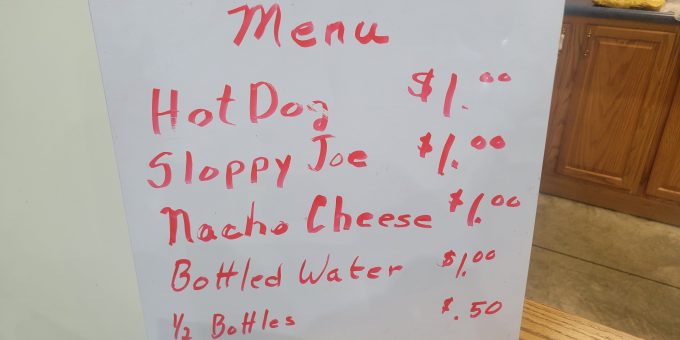 Menu
Hot Dog $1.00
Sloppy Joe $1.00
Nacho Cheese $1.00
Bottled Water $1.00
1/2 Bottles $.50